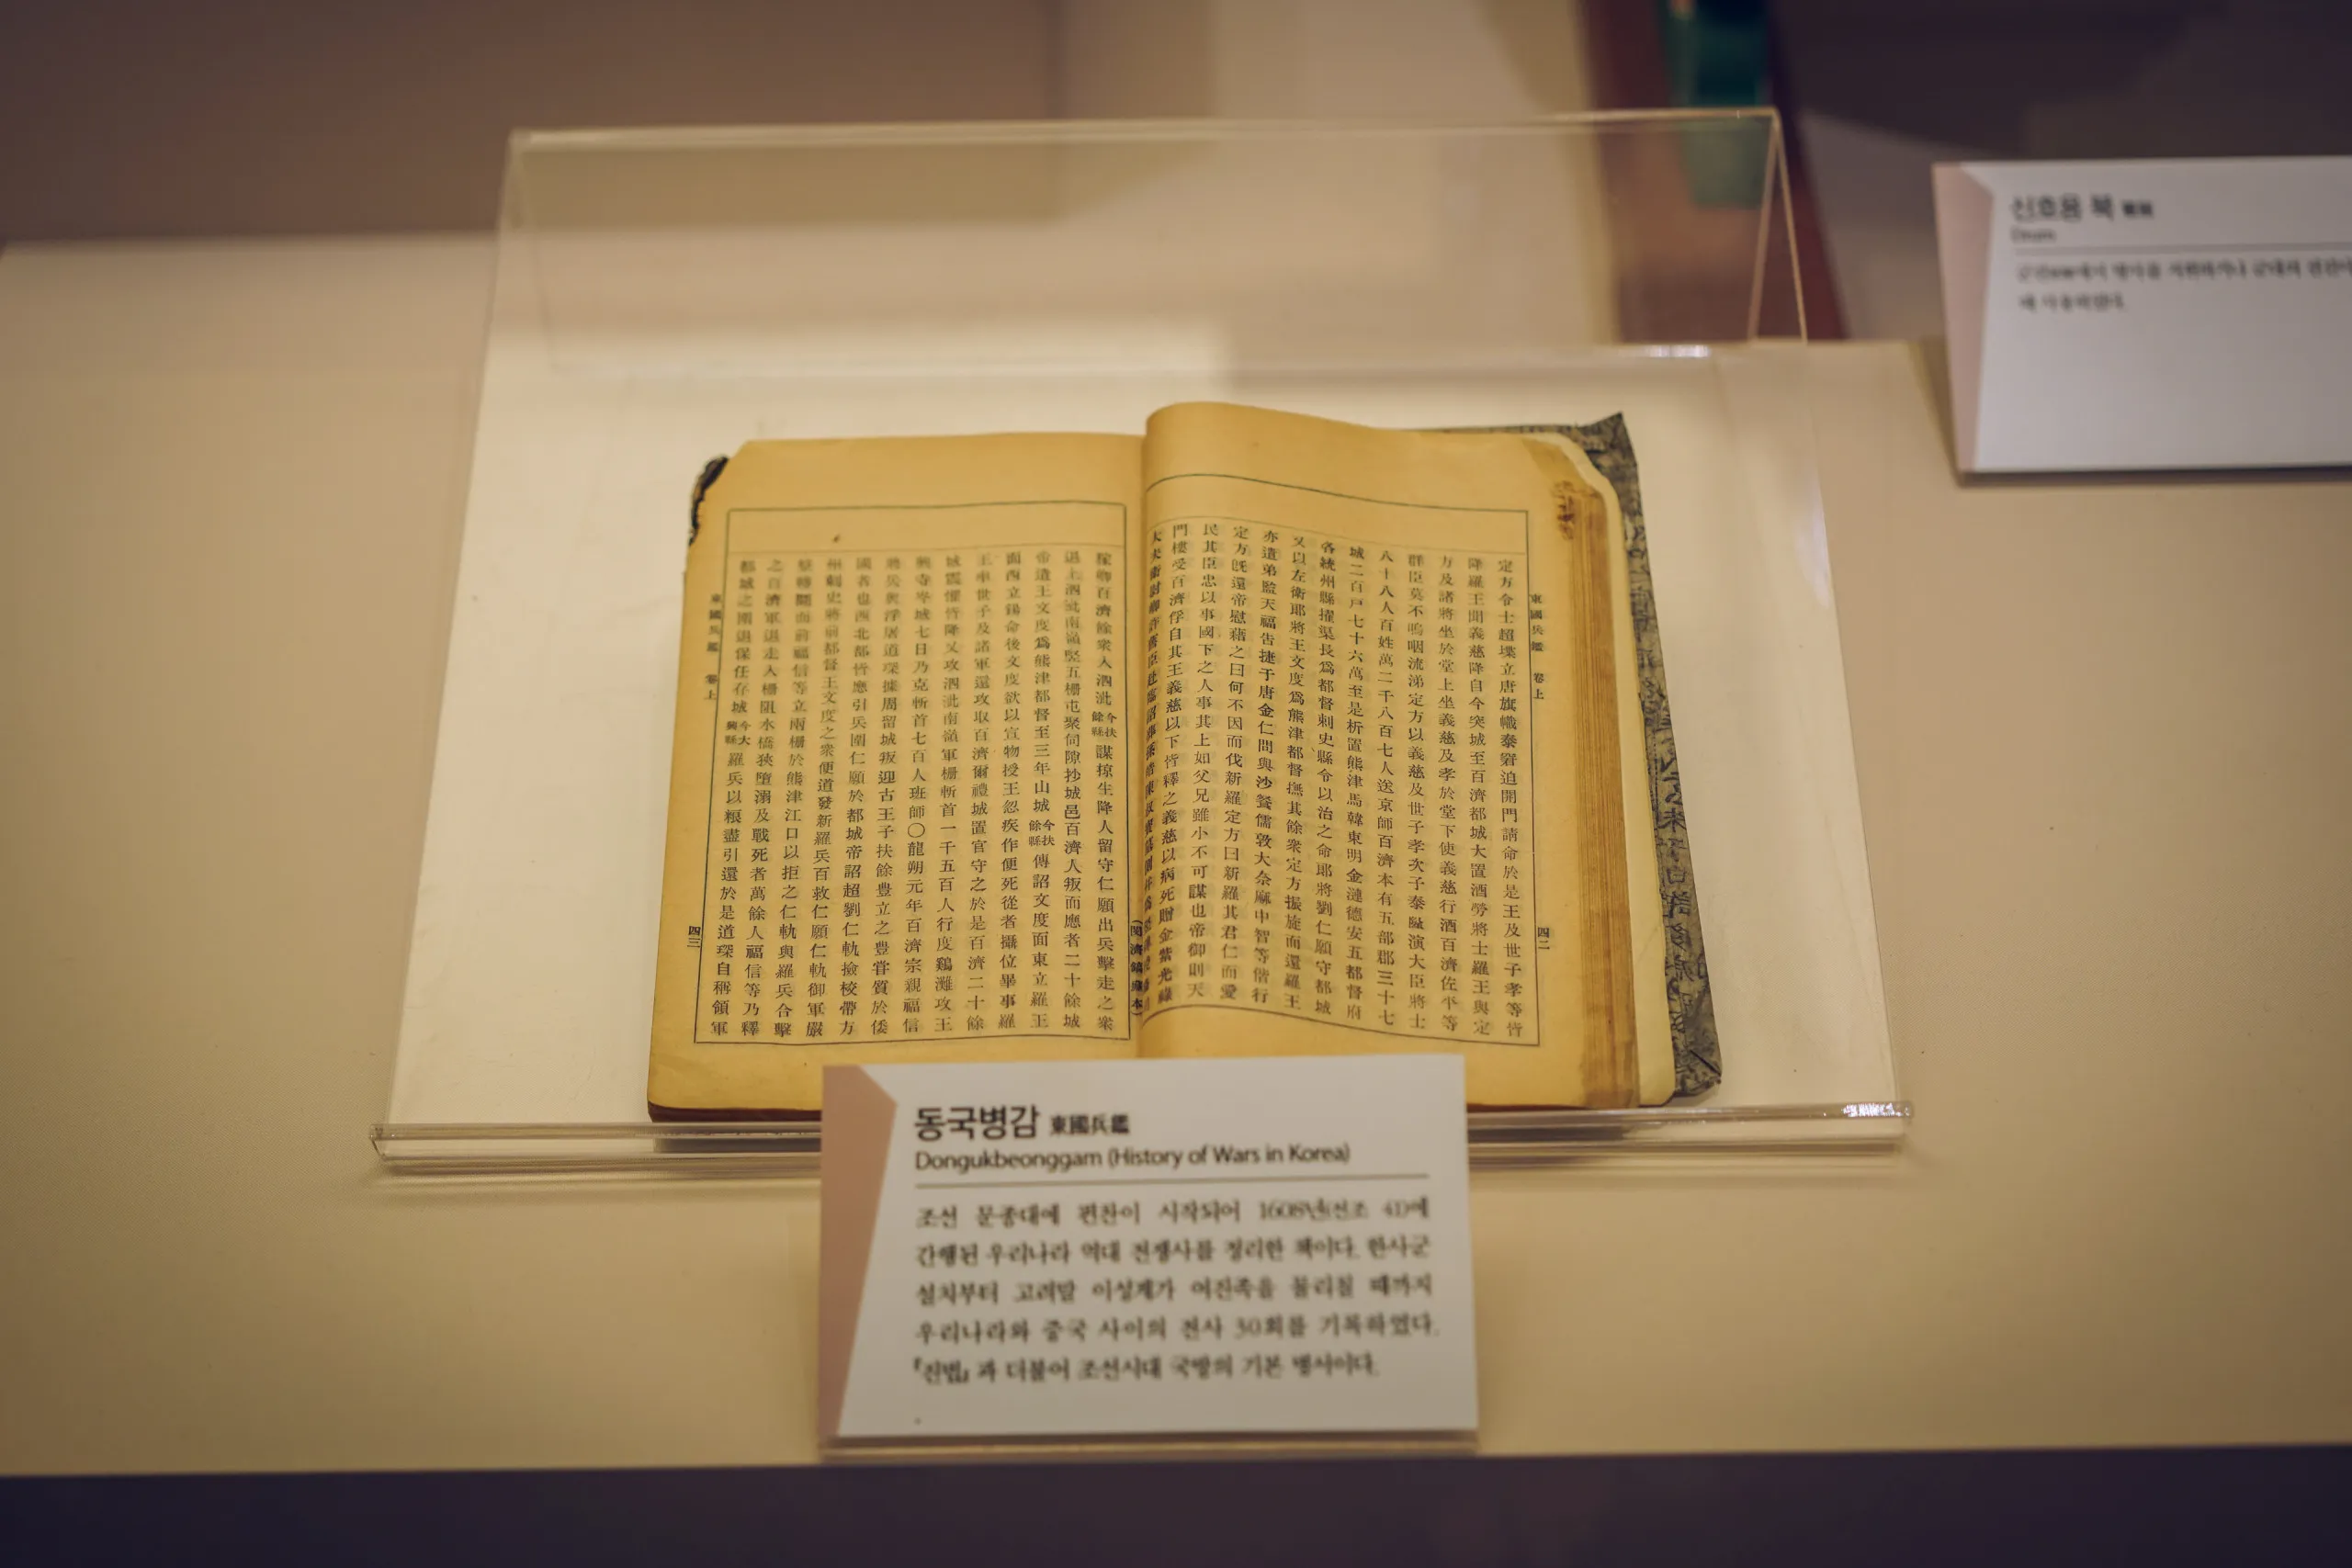 定方令士超堞立唐旗幟泰窘迫開門請命於是王及世子孝等皆
降羅王聞義慈降自今突城至百濟都城大置酒勞將士羅王與定
方及諸將坐於堂上坐義慈及孝於堂下使義慈行酒百濟佐平等
群臣莫不嗚咽流涕定方以義慈及世子孝次子泰隆演大臣將士
八十八人百姓萬二千八百七人送京師百濟本有五部郡三十七
城二百戶七十六萬至是析置熊津馬韓東明金漣德安五都督府
各統州縣擢渠長爲都督刺史縣令以治之命郎將劉仁願守都城
又以左衛郎將王文度爲熊津都督撫其餘衆定方振旅而還羅王
亦遣弟監天福告捷于唐金仁問與沙飡儒敦大奈麻中智等偕行
定方旣還帝慰藉之曰何不因而伐新羅定方曰新羅其君仁而愛
民其臣忠以事國下之人事其上如父兄雖小不可謀也帝御則天
門樓受百濟俘自其王義慈以下皆釋之義慈以病死贈金紫光祿
東國兵鑑 卷上
四二
稼卿百濟餘衆入泗沘今扶餘縣謀掠生降人留守仁願出兵擊走之衆
退上泗沘南嶺竪五柵屯聚伺隙抄城邑百濟人叛而應者二十餘城
帝遣王文度爲熊津都督至三年山城今扶餘縣傳詔文度面東立羅王
面西立錫命後文度欲以宣物授王忽疾作便死從者攝位畢事羅
王率世子及諸軍還攻取百濟爾禮城置官守之於是百濟二十餘
城震懼皆降又攻泗沘南嶺軍柵斬首一千五百人行度鷄灘攻王
興寺岑城七日乃克斬首七百人班師〇龍朔元年百濟宗親福信
將兵與浮屠道琛據周留城叛迎古王子扶餘豊立之豊甞質於倭
國者也西北部皆應引兵圍仁願於都城帝詔超劉仁軌檢校帶方
州刺史將前都督王文度之衆便道發新羅兵百救仁願仁軌御軍嚴
整轉鬪而前福信等立兩柵於熊津江口以拒之仁軌與羅兵合擊
之百濟軍退走入柵阻水橋狹墮溺及戰死者萬餘人福信等乃釋
都城之圍退保任存城今大興縣羅兵以粮盡引還於是道琛自稱領軍
東國兵鑑 卷上
四三
동국병감 東國兵鑑
Dongukbeonggam (History of Wars in Korea)
조선 문종대에 편찬이 시작되어 1608년(선조 41)에
간행된 우리나라 역대 전쟁사를 정리한 책이다. 한사군
설치부터 고려말 이성계가 여진족을 물리칠 때까지
우리나라와 중국 사이의 전사 30회를 기록하였다.
『진법』과 더불어 조선시대 국방의 기본 병서이다.
신호용 북
Drum